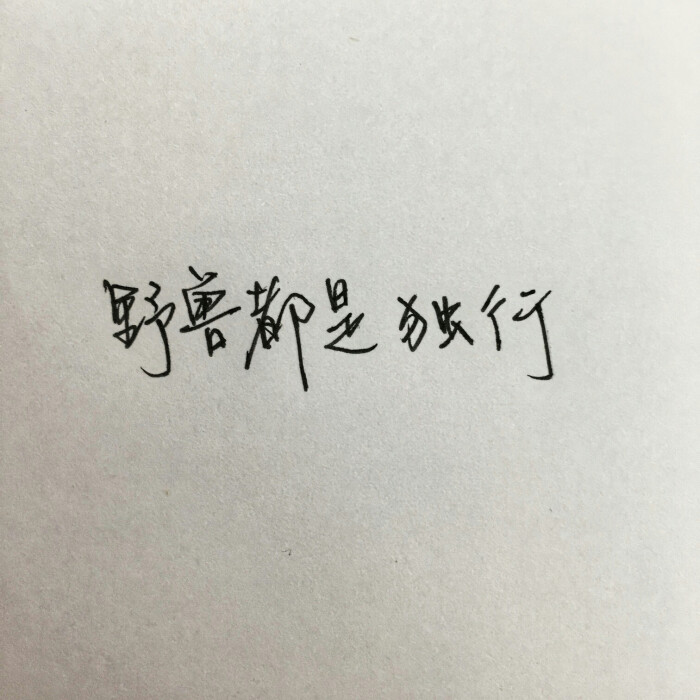 野兽都是独行